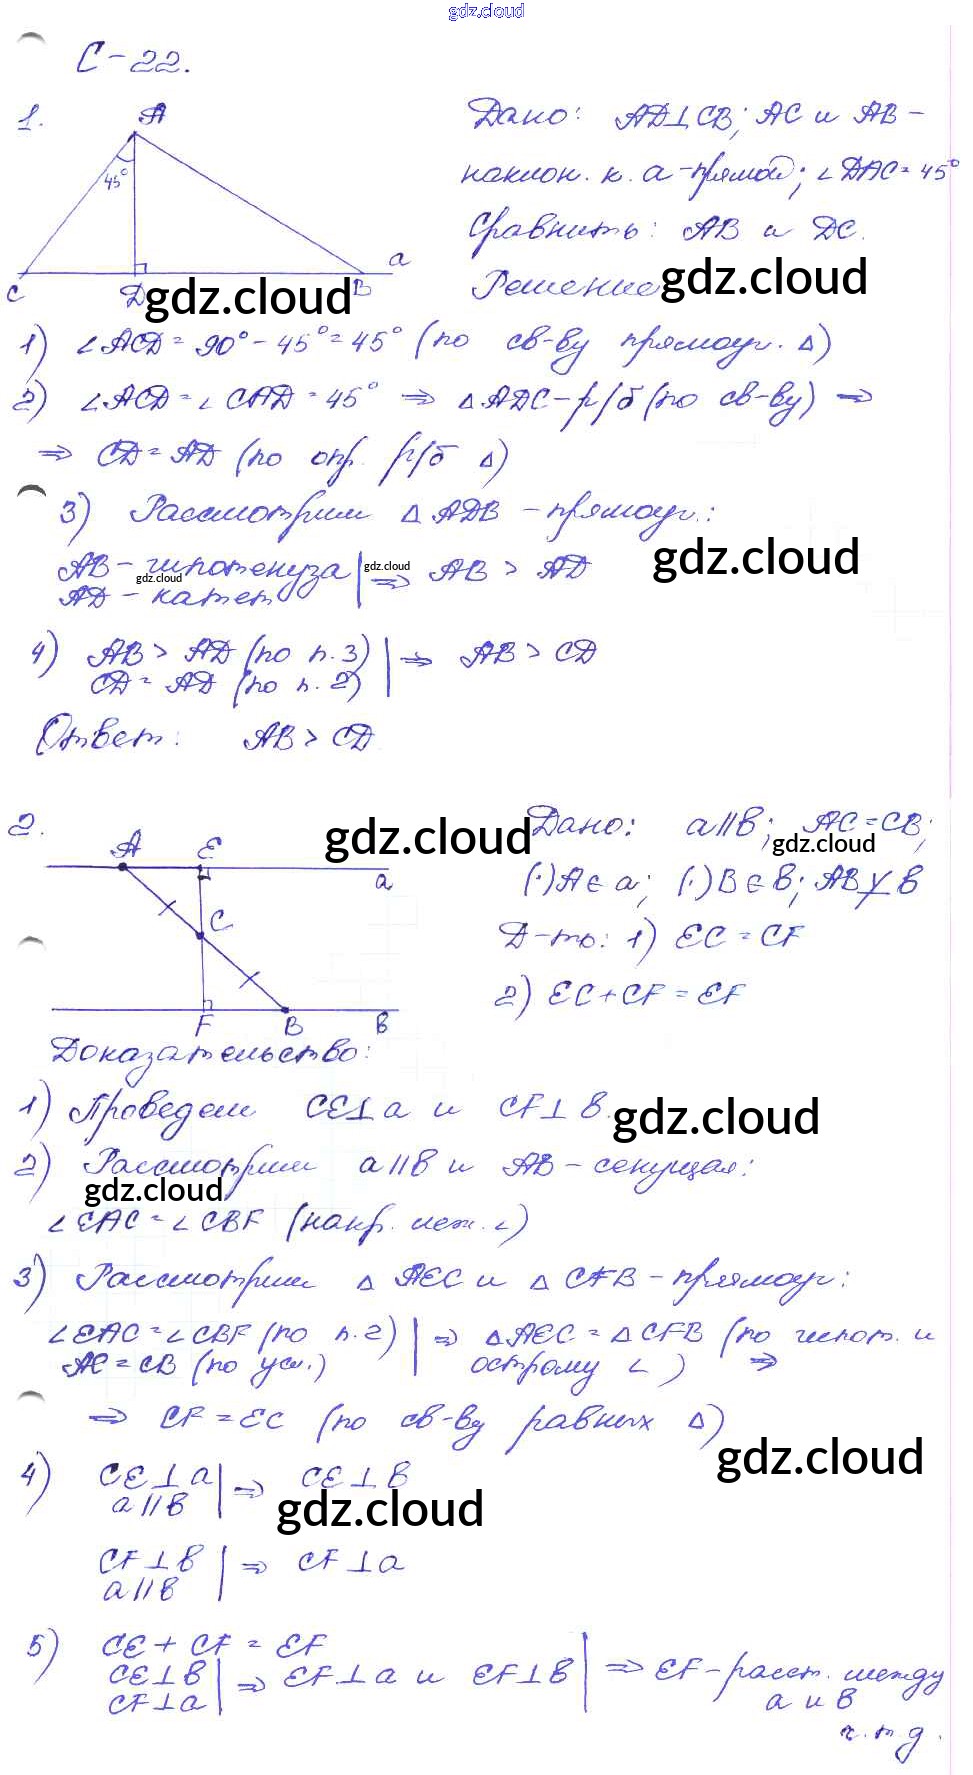 gdz.cloud
С-22.
1.
A
45°
C
D
B
a
Дано: AD⊥CB; AC и AB-
наклон. к. a-прямой; ∠DAC=45°
Сравнить: AB и DC.
Решение
gdz.cloud
gdz.cloud
1) ∠ACD=90°-45°=45° (по св-ву прямоуг. △)
2) ∠ACD=∠CAD=45° ⇒ △ADC-р/б (по св-ву) ⇒
⇒ CD=AD (по опр. р/б △)
3) Рассмотрим △ADB-прямоуг.:
AB-гипотенуза | ⇒ AB > AD
AD-катет
gdz.cloud
gdz.cloud
gdz.cloud
4) AB > AD (по п.3) | ⇒ AB > CD
CD=AD (по п.2)
Ответ: AB > CD
2.
A
E
a
C
F
B
в
gdz.cloud
Дано: a||в; AC=CB;
gdz.cloud
(·)A∈a; (·)B∈в; AB⊥̸в
Д-ть: 1) EC=CF
2) EC+CF=EF
Доказательство:
1) Проведем CE⊥a и CF⊥в.
gdz.cloud
2) Рассмотрим a||в и AB-секущая:
gdz.cloud
∠EAC=∠CBF (накр. леж. ∠)
3) Рассмотрим △AEC и △CFB-прямоуг:
∠EAC=∠CBF (по п.2) | ⇒ △AEC=△CFB (по гипот. и
AC=CB (по усл.) острому ∠) ⇒
⇒ CF=EC (по св-ву равных △)
gdz.cloud
4) CE⊥a | ⇒ CE⊥в
a||в
gdz.cloud
CF⊥в | ⇒ CF⊥a
a||в
5) CE+CF=EF
CE⊥в | ⇒ EF⊥a и EF⊥в | ⇒ EF-расст. между
CF⊥a a и в
ч.т.д.